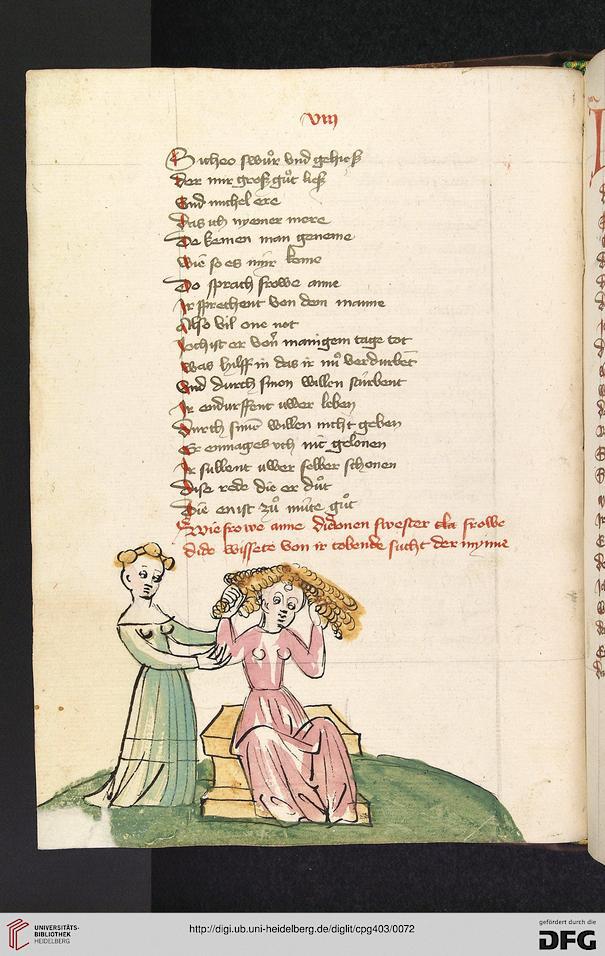 viij
Sicheo swůr vnd gehieß
Der mir groß gůt ließ
Vnd michel ere
Das ich nyemer mere
De keinen man geneme
Wie so es mir keme
Do sprach frowe anne
Ir sprechent von dem manne
Also vil one not
Joch ist er von manigem tage tot
Was hilff in das ir nů verdurbēt
Vnd durch sinen willen sturbent
Ir endurffent uwer leben
Durch sinen willen nicht geben
Er enmages vch nit gelonen
Ir sullent uwer selber schonen
Dise rede die er důt
Die en ist zů müte gůt
Wie frowe anne didonen swester cla frowe
dido wissete von ir tobende sucht der mynne
UNIVERSITÄTS-
BIBLIOTHEK
HEIDELBERG
http://digi.ub.uni-heidelberg.de/diglit/cpg403/0072
gefördert durch die
DFG